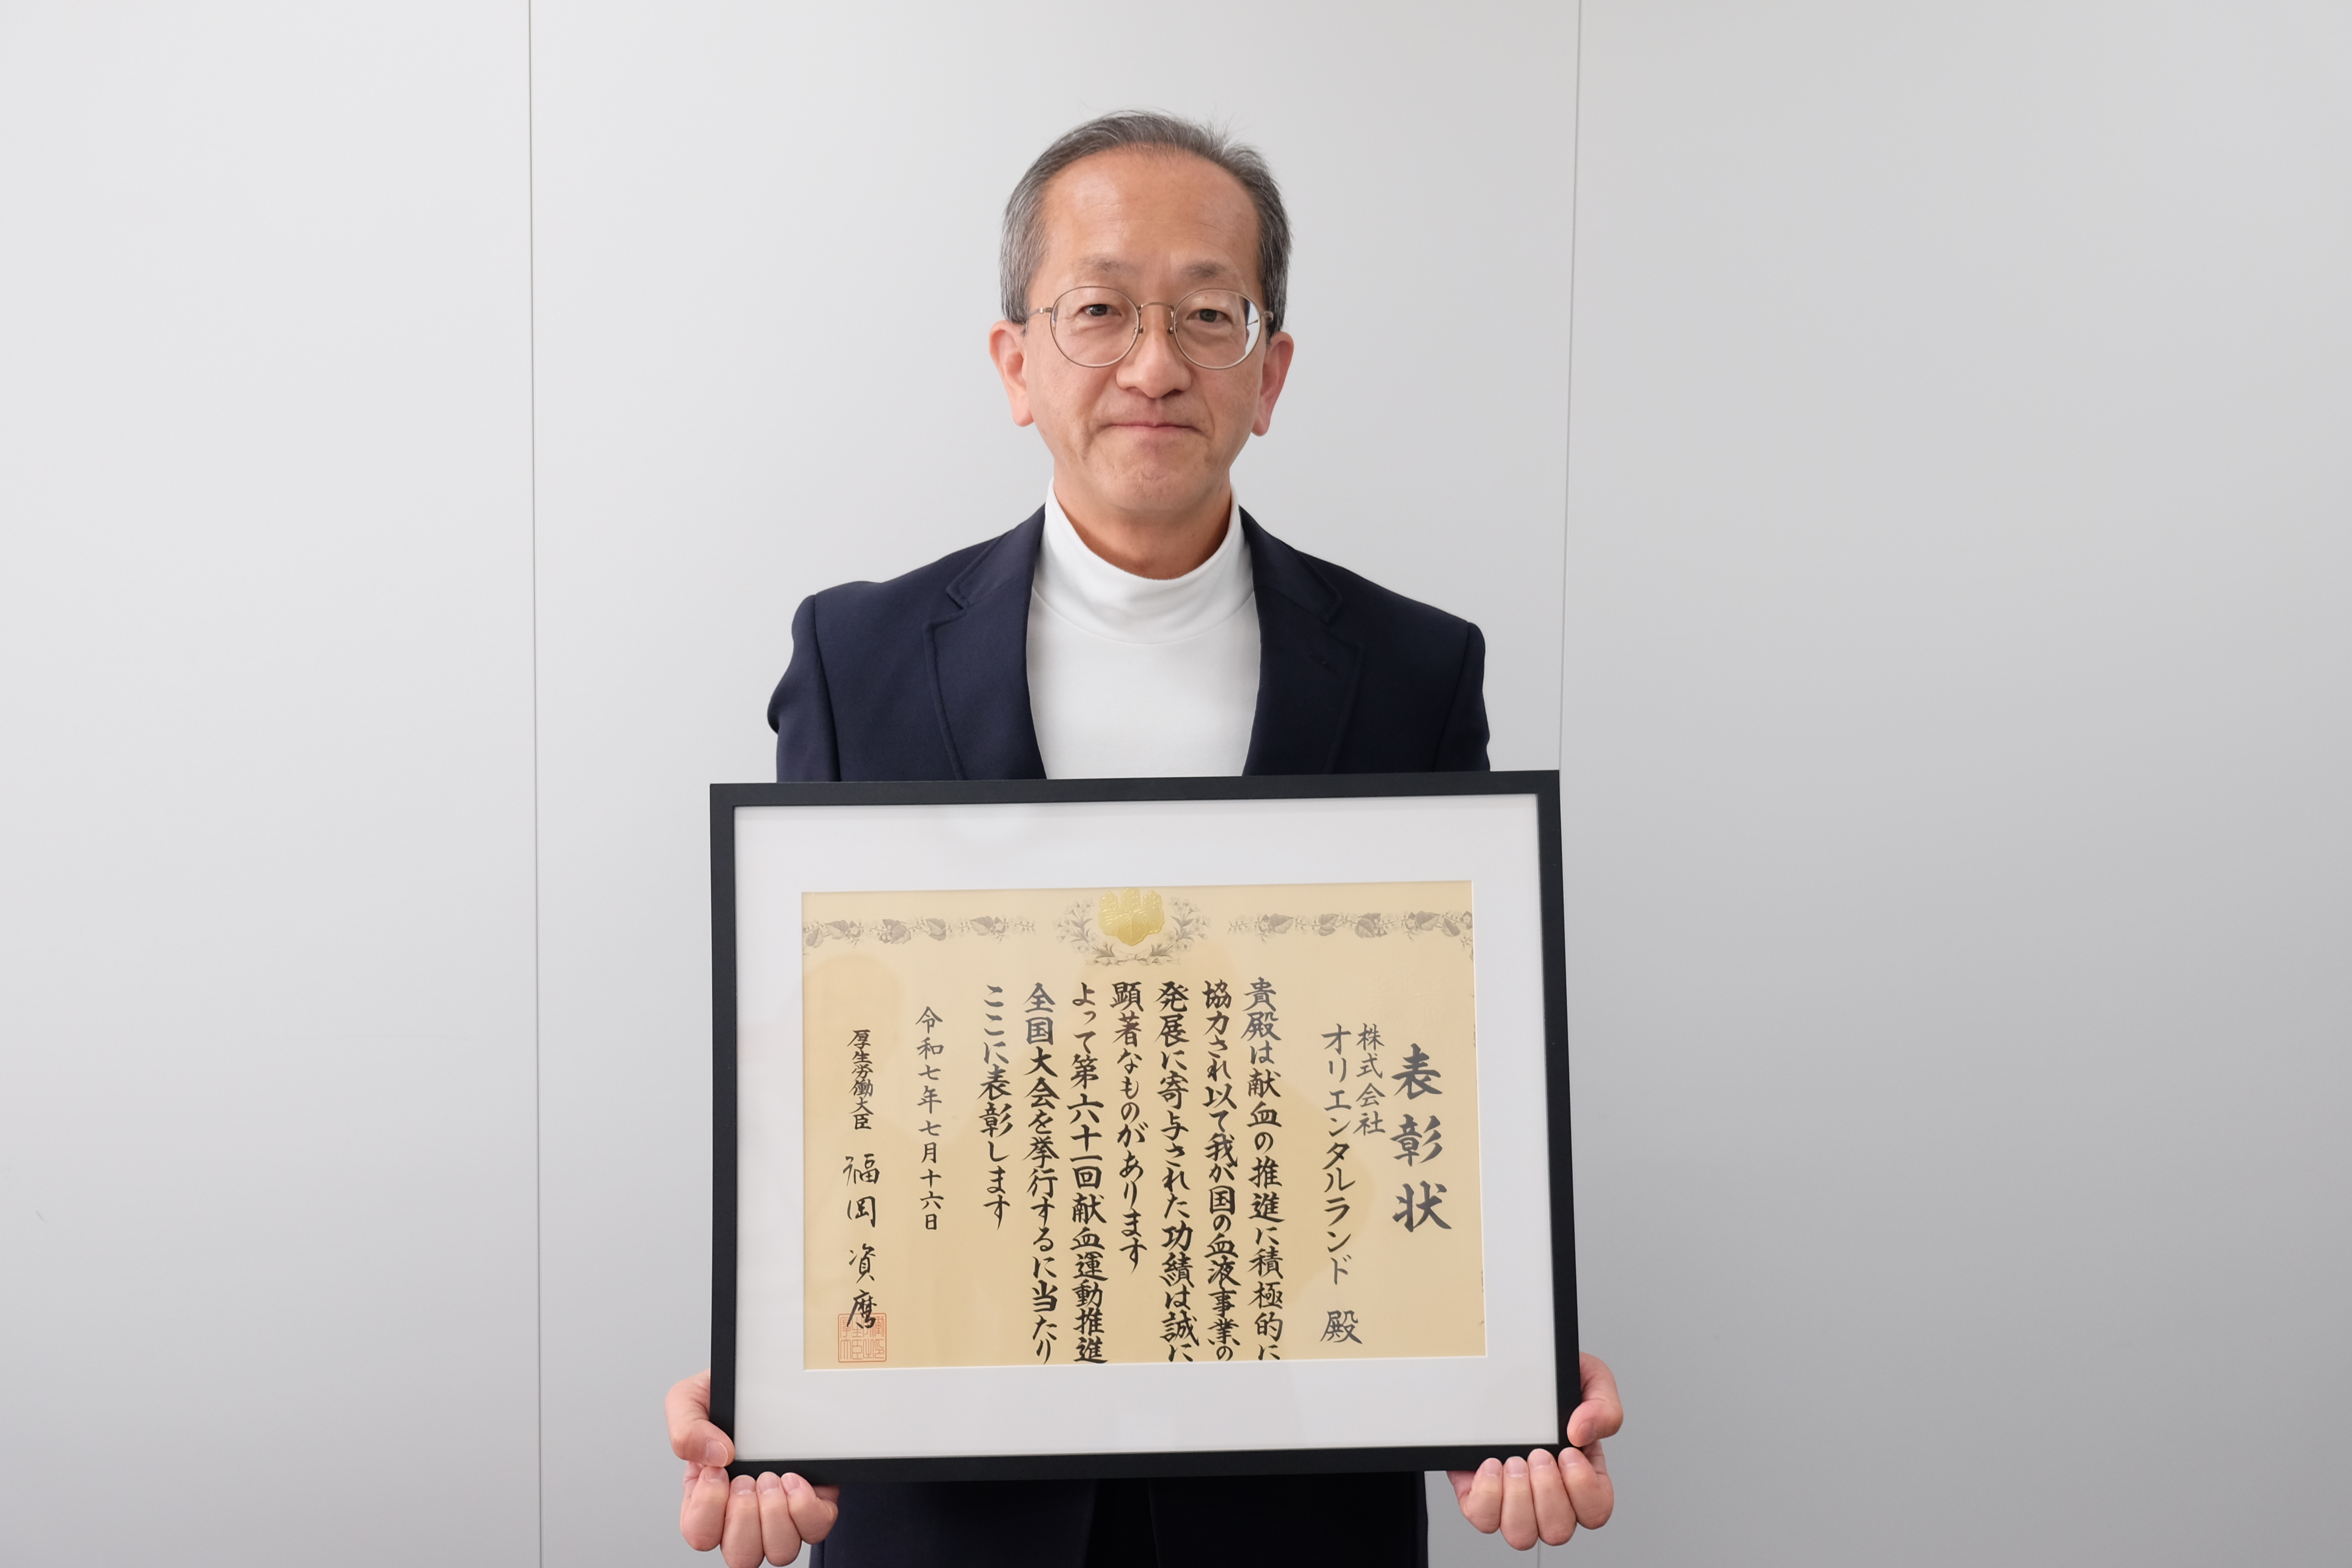 表彰状
株式会社
オリエンタルランド 殿
貴殿は献血の推進に積極的に
協力され以て我が国の血液事業の
発展に寄与された功績は誠に
顕著なものがあります
よって第六十一回献血運動推進
全国大会を挙行するに当たり
ここに表彰します
令和七年七月十六日
厚生労働大臣 福岡資麿